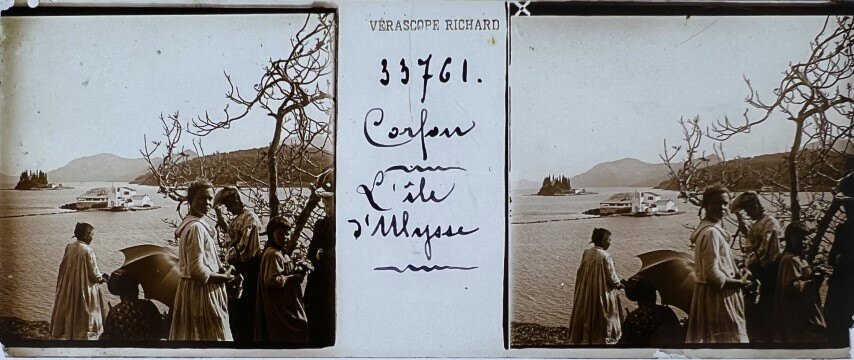 VÉRASCOPE RICHARD
33761.
Corfou
L'île
d'Ulysse